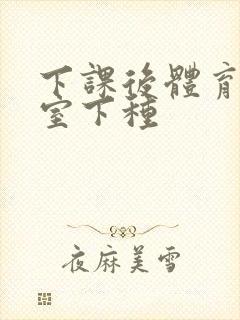 下課後體育
室下種
夜麻美雪